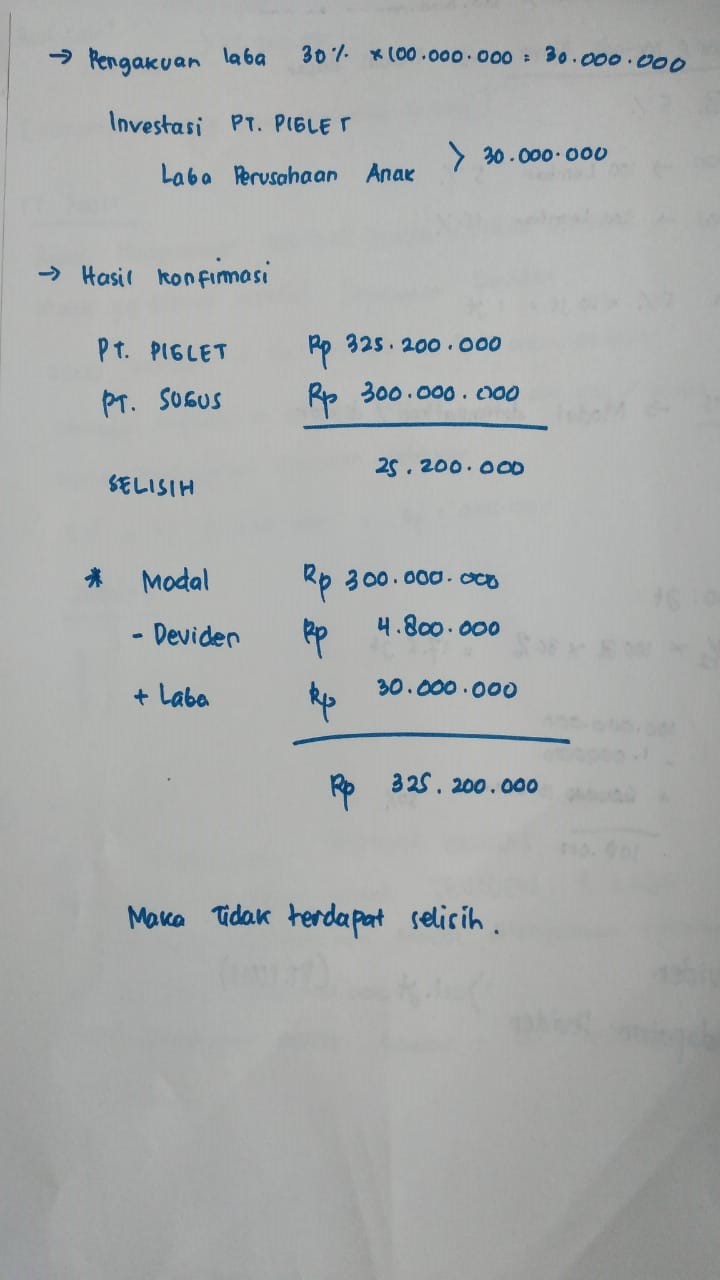 → Pengakuan laba 30% × 100.000.000 = 30.000.000
Investasi PT. PIGLET
Laba Perusahaan Anak
> 30.000.000
→ Hasil konfirmasi
PT. PIGLET Rp 325.200.000
PT. SOGUS Rp 300.000.000
SELISIH 25.200.000
* Modal Rp 300.000.000
- Deviden Rp 4.800.000
+ Laba Rp 30.000.000
Rp 325.200.000
Maka Tidak terdapat selisih.